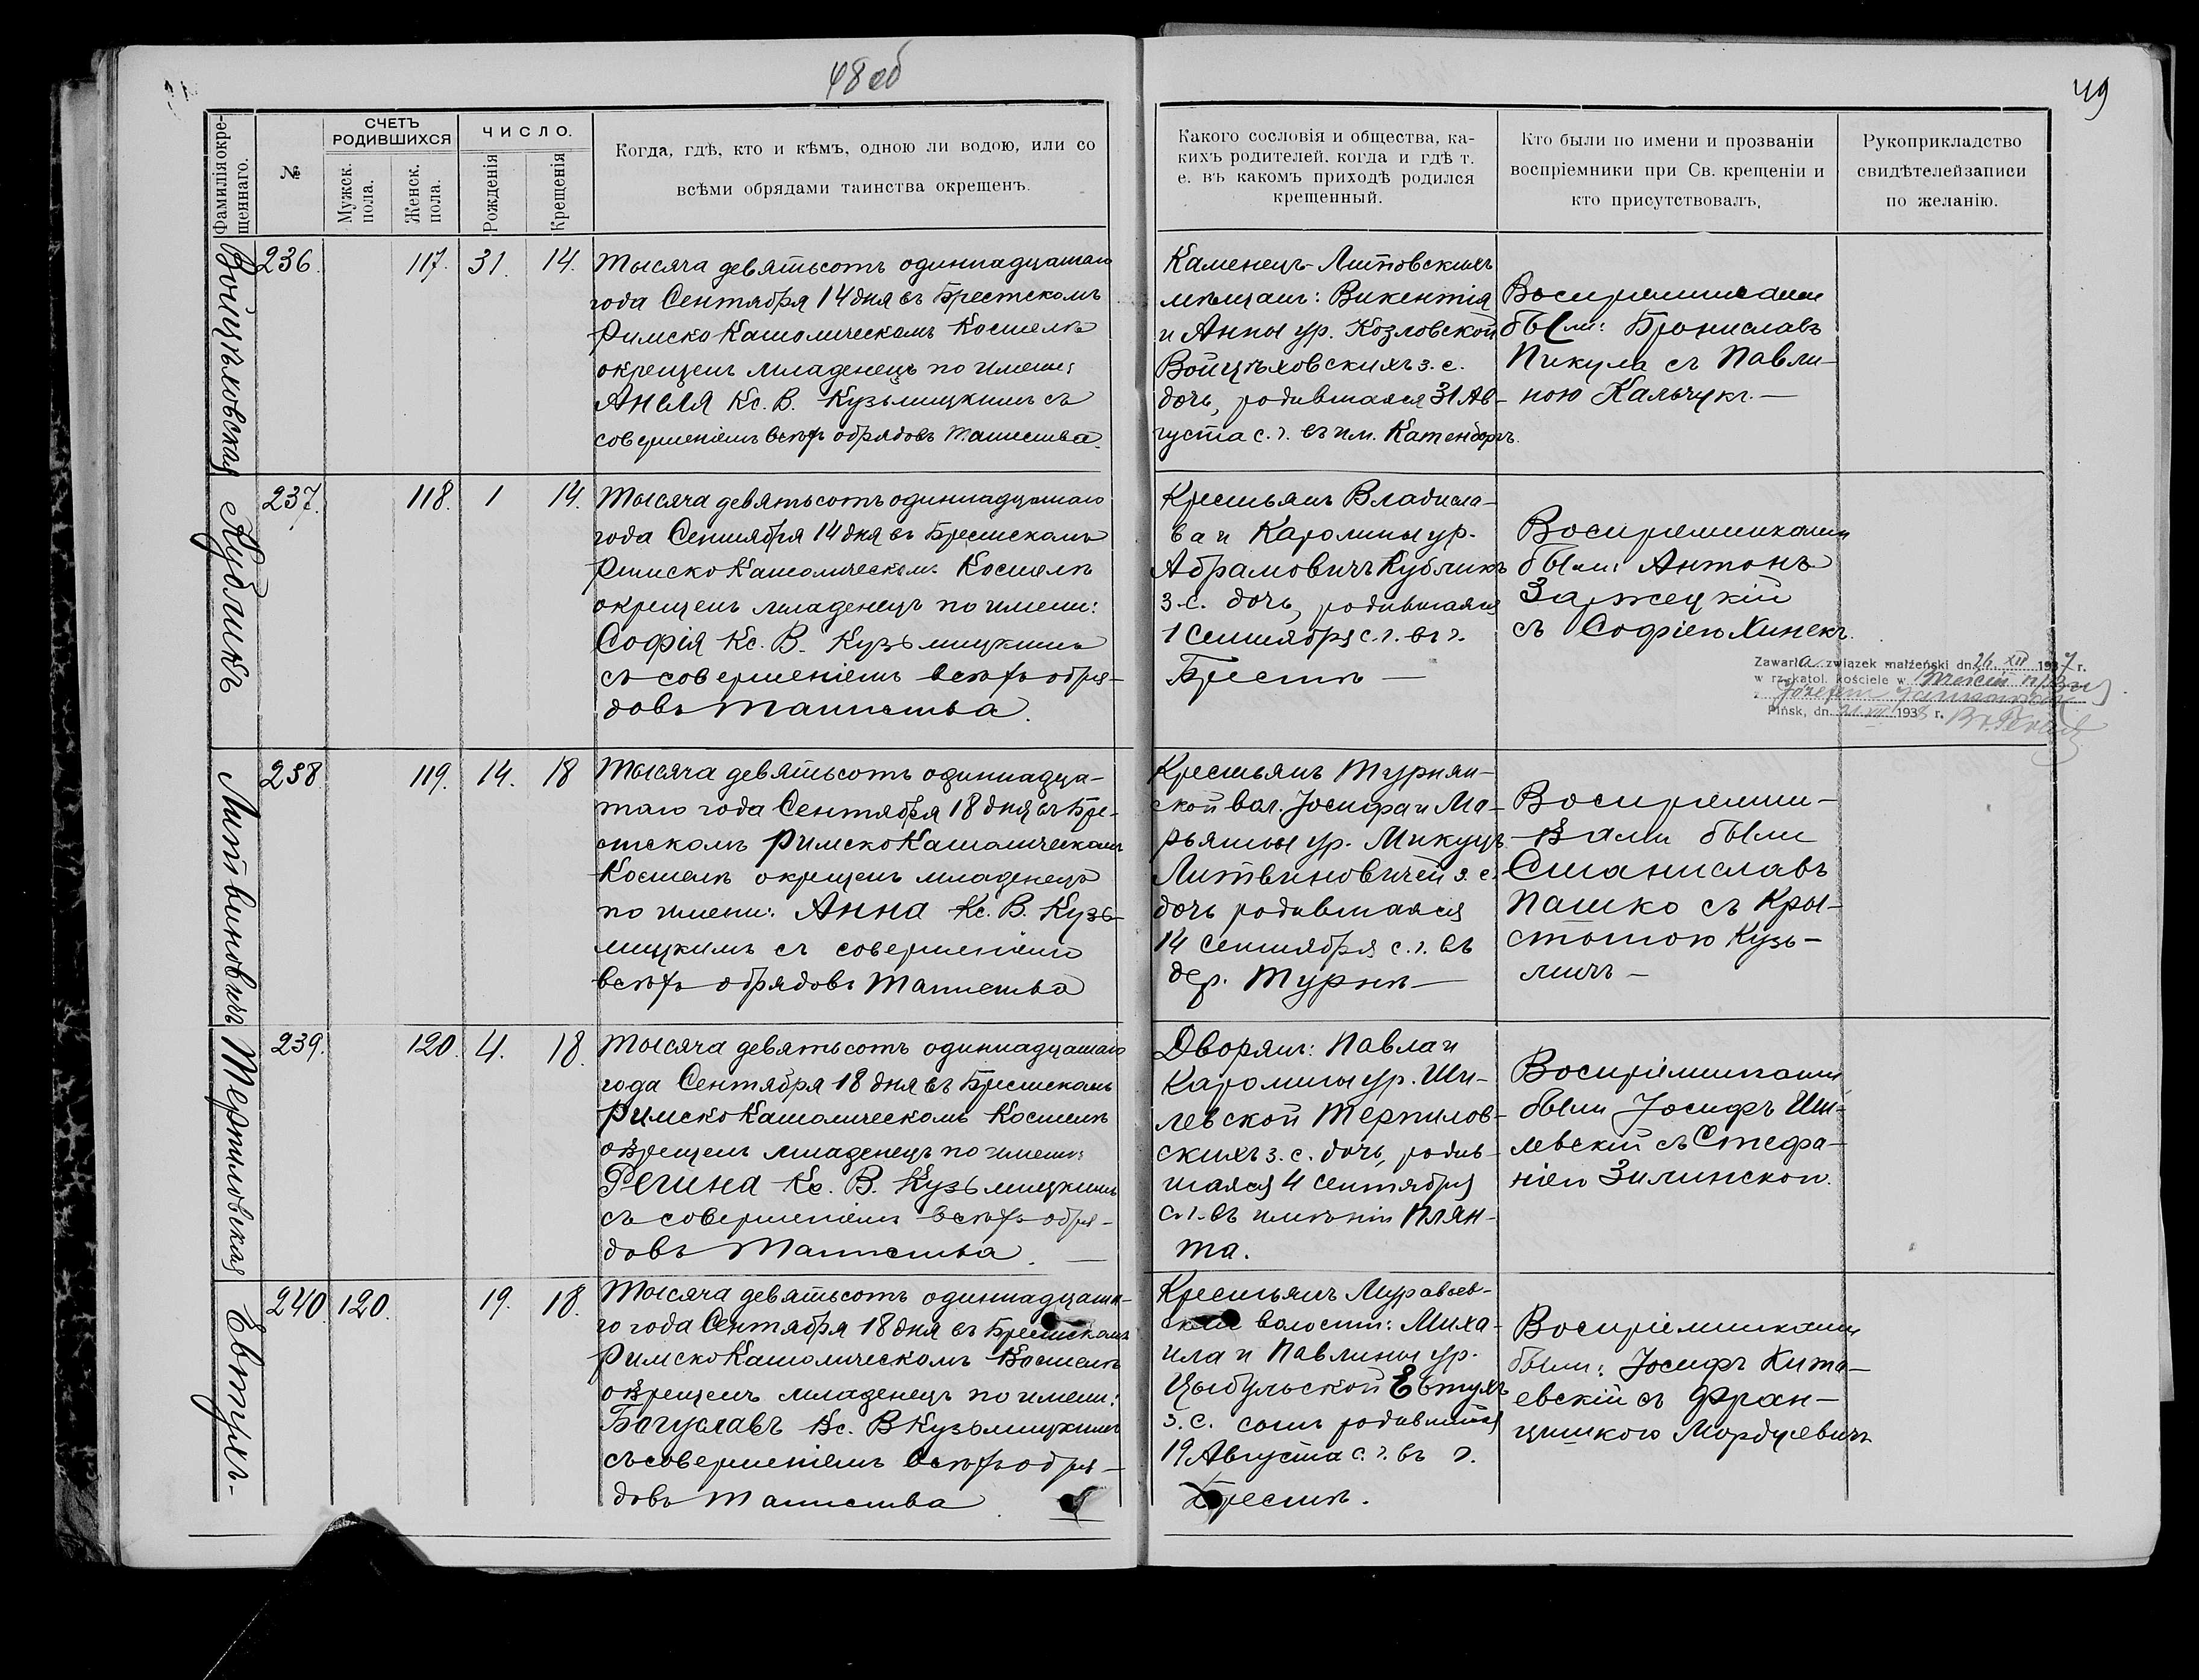 48 об
49
Фамилія окре-
щеннаго.
№
СЧЕТЪ
РОДИВШИХСЯ
Мужск.
пола.
Женск.
пола.
ЧИСЛО.
Рожденія
Крещенія
Когда, гдѣ, кто и кѣмъ, одною ли водою, или со
всѣми обрядами таинства окрещенъ.
Какого сословія и общества, ка-
кихъ родителей, когда и гдѣ т.
е. въ какомъ приходѣ родился
крещенный.
Кто были по имени и прозванію
воспріемники при Св. крещеніи и
кто присутствовалъ.
Рукоприкладство
свидѣтелей записи
по желанію.
Войцѣховская
236. 117. 31. 14.
Тысяча девятьсотъ одиннадцатаго
года Сентября 14 дня въ Брестскомъ
Римско Католическомъ Костелѣ
окрещенъ младенецъ по имени:
Анеля Кс. В. Кузьмицкимъ съ
совершеніемъ всѣхъ обрядовъ Таинства.
Каменецъ-Литовскихъ
мѣщанъ: Викентія
и Анны ур. Козловской
Войцѣховскихъ з. с.
дочь, родившаяся 31 Ав-
густа с. г. въ им. Катенборгъ.
Воспріемниками
были: Брониславъ
Пикула съ Павли-
ною Кальчукъ. —
Кубликъ
237. 118. 1 14.
Тысяча девятьсотъ одиннадцатаго
года Сентября 14 дня въ Брестскомъ
Римско Католическомъ Костелѣ
окрещенъ младенецъ по имени:
Софія Кс. В. Кузьмицкимъ
съ совершеніемъ всѣхъ обря-
довъ Таинства.
Крестьянъ Владисла-
ва и Каролины ур.
Абрамовичъ Кубликъ
з. с. дочь, родившаяся
1 Сентября с. г. въ г.
Брестѣ —
Воспріемниками
были: Антонъ
Заржецкій
съ Софіею Хинекъ.
Zawarła związek małżeński dn. 26. XII 1937 r.
w rz.-katol. kościele w Brześciu n/Bug
z Józefem
Pińsk, dn. XII 1938 r.
Литвиновичъ
238. 119. 14. 18
Тысяча девятьсотъ одиннадца-
таго года Сентября 18 дня въ Бре-
стскомъ Римско Католическомъ
Костелѣ окрещенъ младенецъ
по имени: Анна Кс. В. Кузь-
мицкимъ съ совершеніемъ
всѣхъ обрядовъ Таинства
Крестьянъ Турнян-
ской вол. Іосифа и Ма-
рьянны ур. Микуцъ
Литвиновичей з. с.
дочь родившаяся
14 Сентября с. г. въ
дер. Турнѣ —
Воспріемни-
ками были
Станиславъ
Пашко съ Кры-
стыною Кузь-
мичъ —
Терпиловская
239. 120. 4. 18.
Тысяча девятьсотъ одиннадцатаго
года Сентября 18 дня въ Брестскомъ
Римско Католическомъ Костелѣ
окрещенъ младенецъ по имени:
Регина Кс. В. Кузьмицкимъ
съ совершеніемъ всѣхъ обря-
довъ Таинства. —
Дворянъ: Павла и
Каролины ур. Ши-
левской Терпилов-
скихъ з. с. дочь, родив-
шаяся 4 Сентября
с. г. въ имѣніи Плян-
та.
Воспріемниками
были Іосифъ Ши-
левскій съ Стефа-
ніею Зилинской.
Евтухъ-
240. 120. 19. 18.
Тысяча девятьсотъ одиннадцата-
го года Сентября 18 дня въ Брестскомъ
Римско Католическомъ Костелѣ
окрещенъ младенецъ по имени:
Богуславъ Кс. В Кузьмицкимъ
съ совершеніемъ всѣхъ обря-
довъ Таинства
Крестьянъ Муравьев-
ской волости: Миха-
ила и Павлины ур.
Цыбульской Евтухъ
з. с. сынъ родившійся
19 Августа с. г. въ г.
Брестѣ.
Воспріемниками
были: Іосифъ Кита-
евскій съ Фран-
цишкою Мордусевичъ